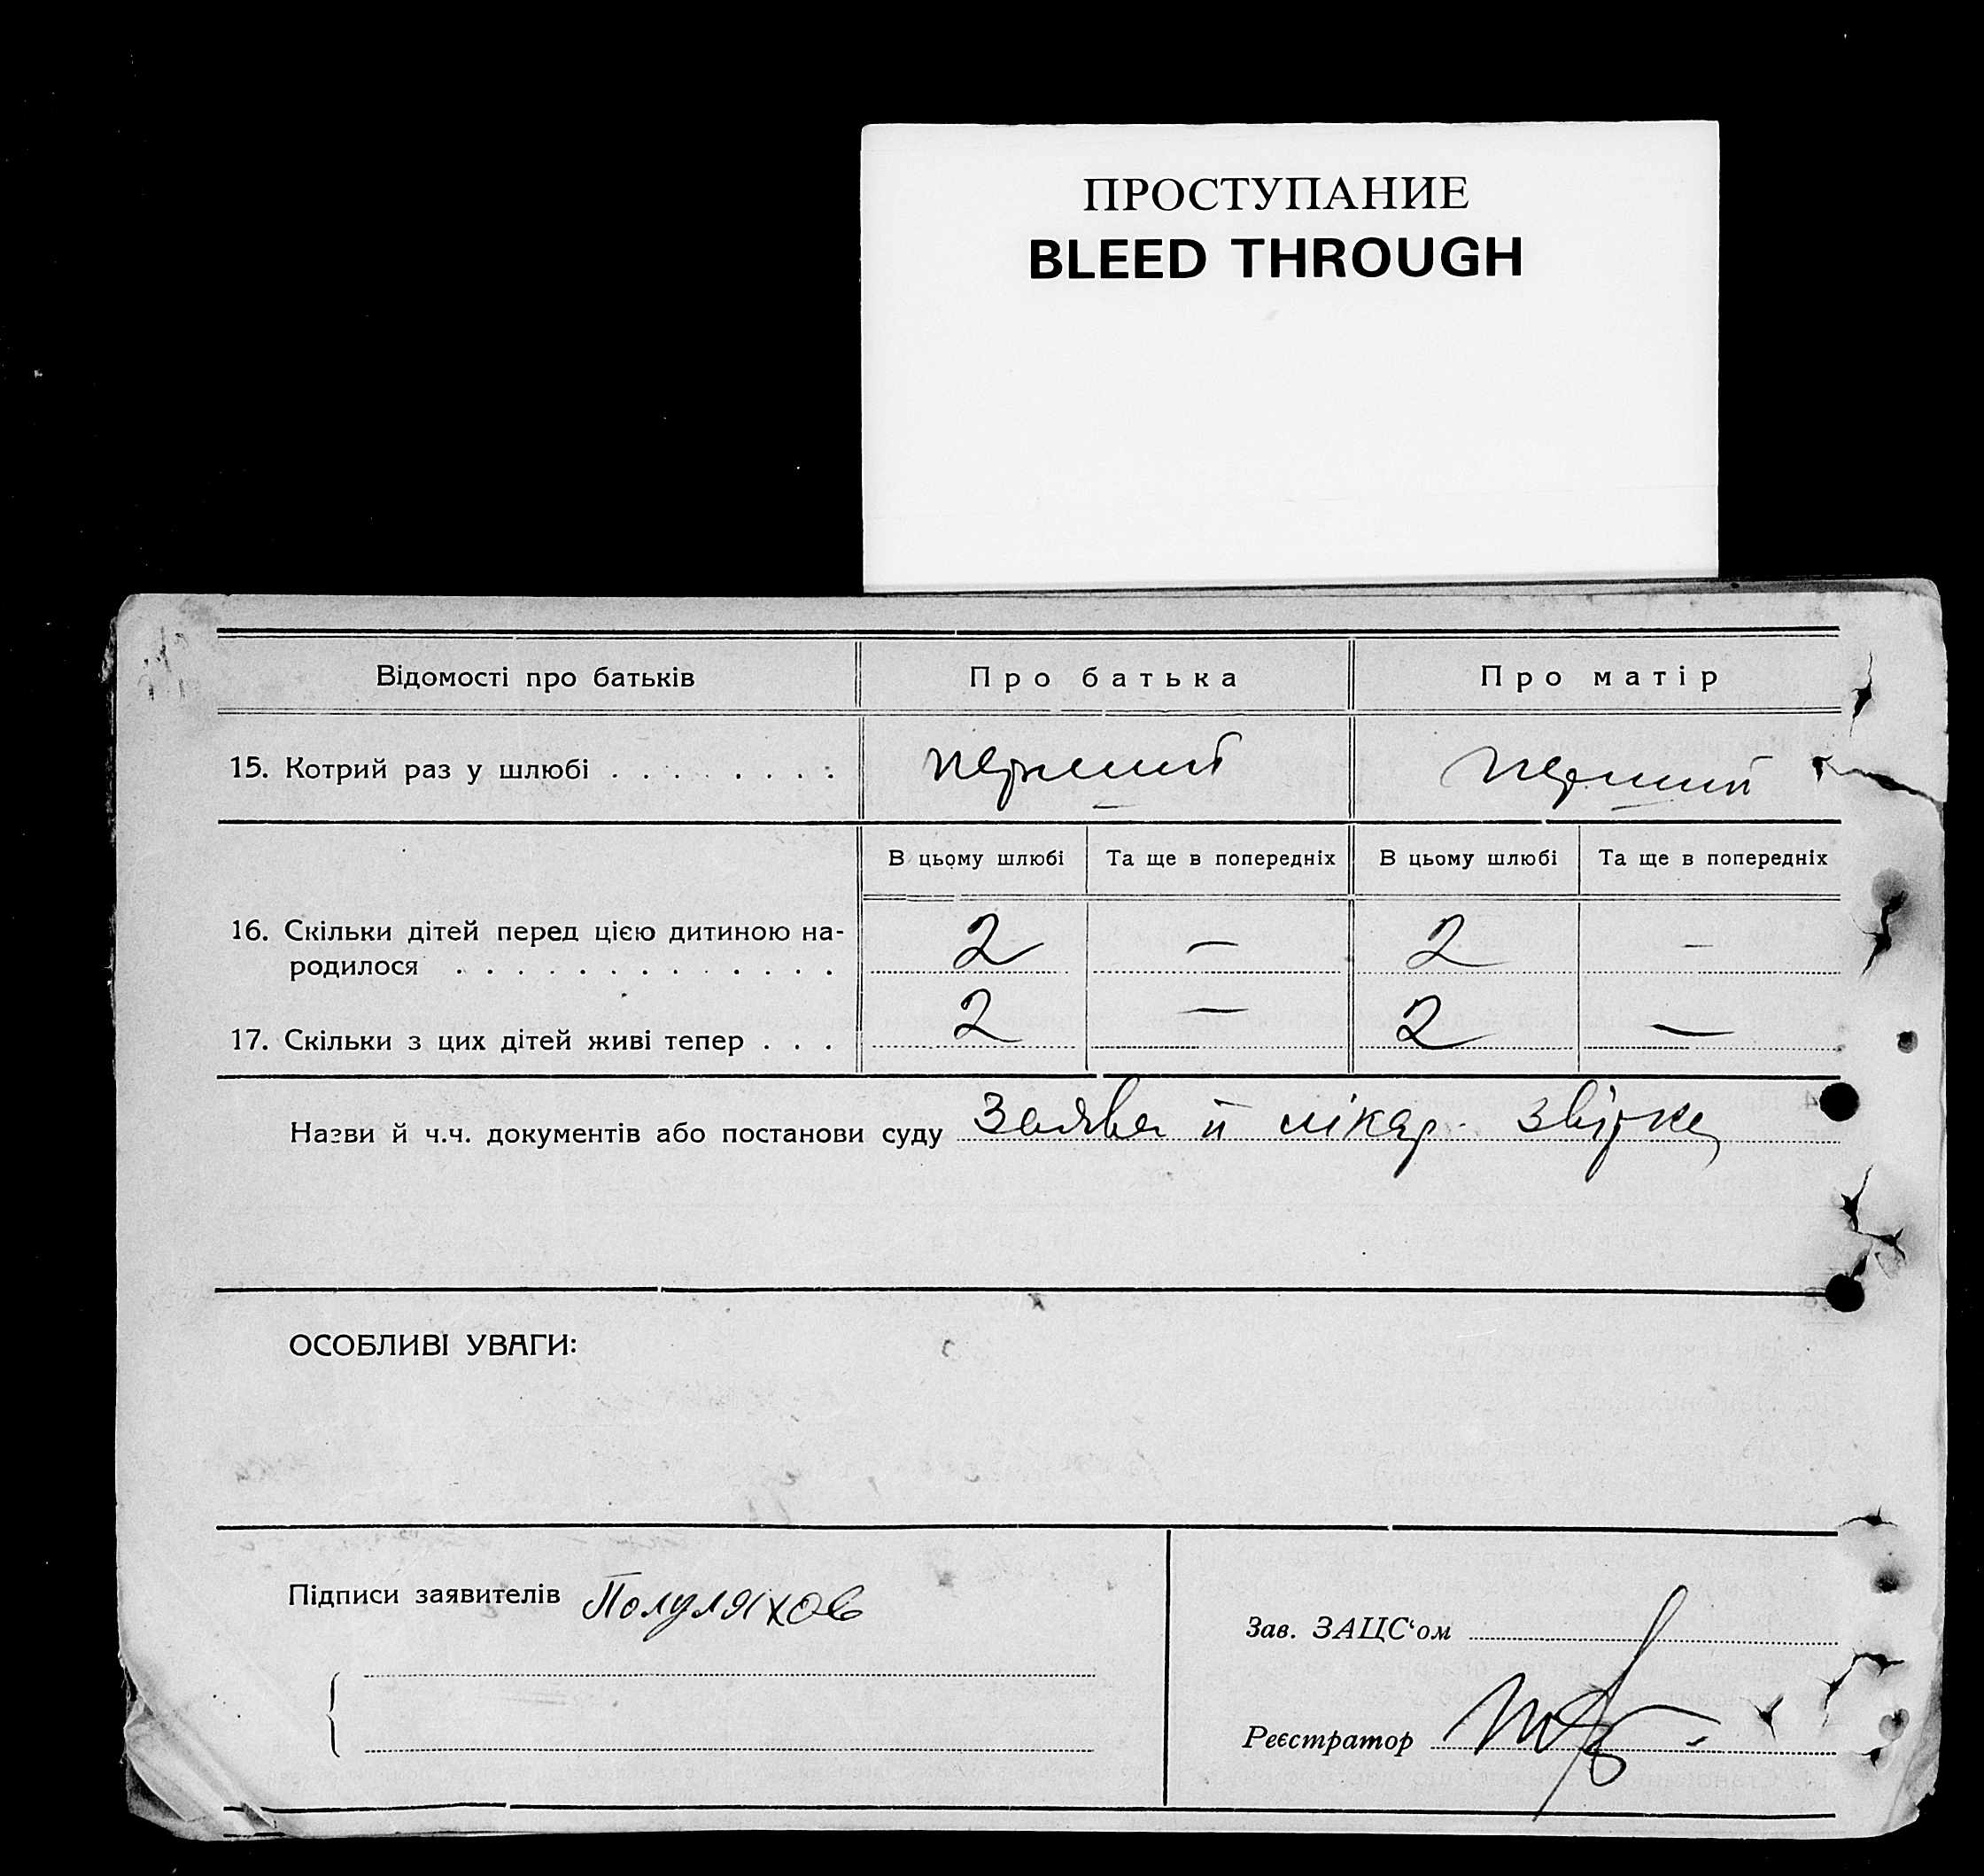 ПРОСТУПАНИЕ
BLEED THROUGH
Відомості про батьків Про батька Про матір
15. Котрий раз у шлюбі . . . . . . . . перший перший
В цьому шлюбі Та ще в попередніх В цьому шлюбі Та ще в попередніх
16. Скільки дітей перед цією дитиною на-
родилося . . . . . . . . . . . . . 2 — 2 —
17. Скільки з цих дітей живі тепер . . . 2 — 2 —
Назви й ч.ч. документів або постанови суду Заява й лікар.
ОСОБЛИВІ УВАГИ:
Підписи заявителів Полуляхов
Зав. ЗАЦС‘ом
Реєстратор